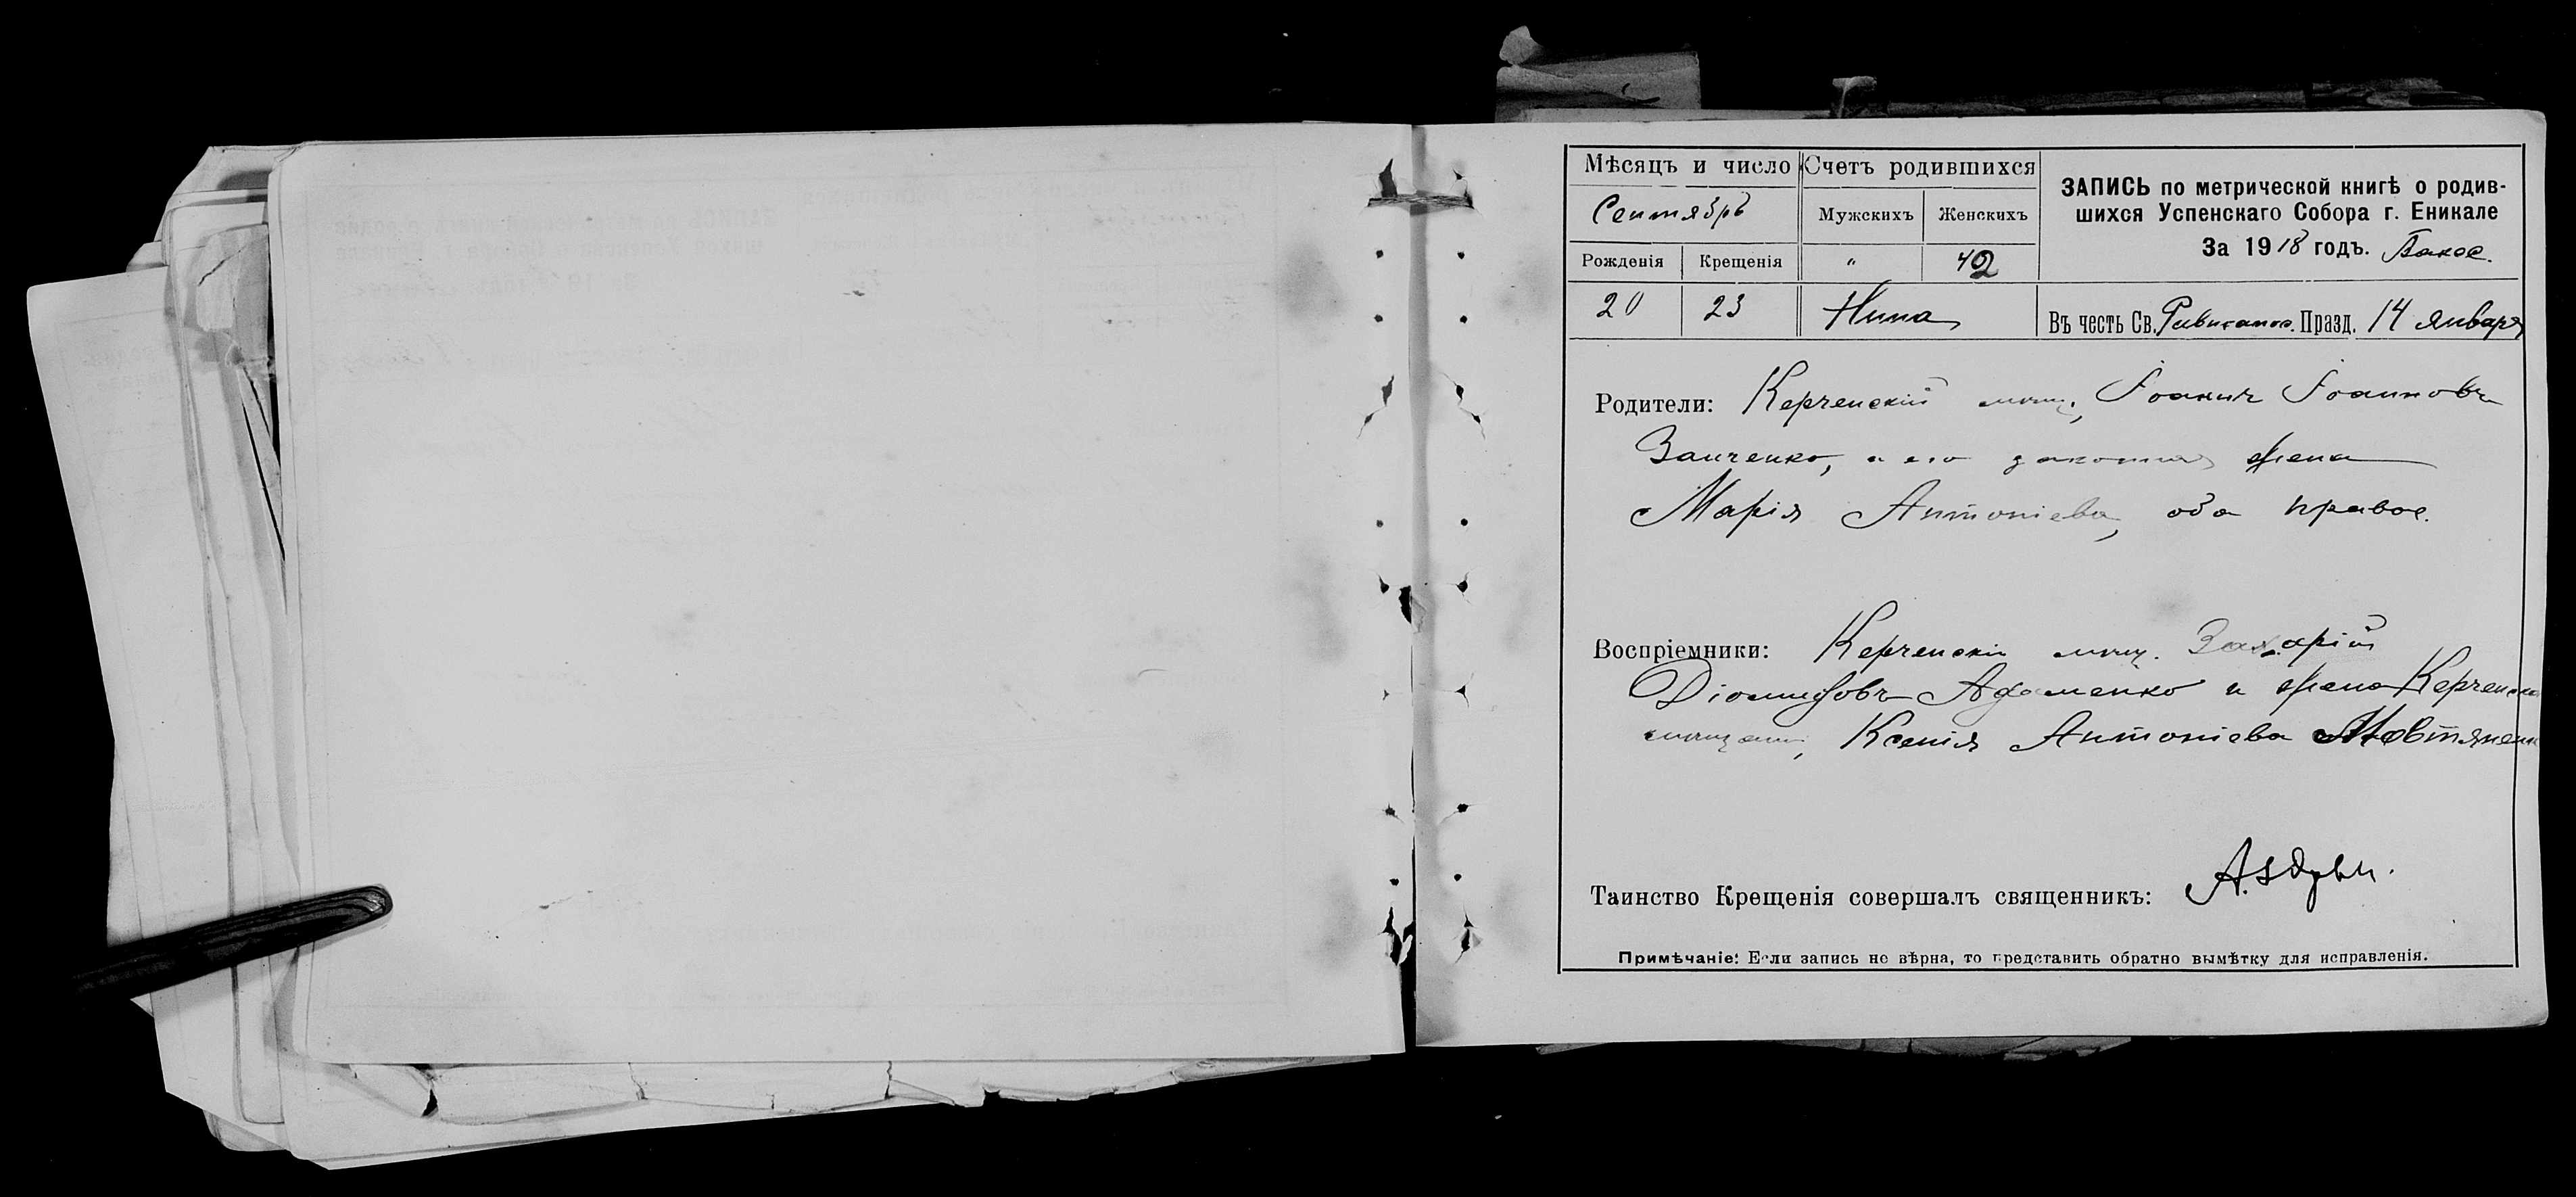 Мѣсяцъ и число
Счетъ родившихся
ЗАПИСЬ по метрической книгѣ о родив-
шихся Успенскаго Собора г. Еникале
За 1918 годъ.
Сентябрь
Мужскихъ
Женскихъ
Рожденія
Крещенія
"
42
20
23
Нина
Въ честь Св. Празд. 14 января
Родители: Керченскій мѣщ., Іоаннъ Іоанновъ
Занченко, и его законная жена
Марія Антоніева, оба правос.
Воспріемники: Керченскій мѣщ. Захарій
Діомидовъ Адаменко и жена Керченска
мѣщани, Ксенія Антоніева Мовтяненк
Таинство Крещенія совершалъ священникъ:
Примѣчаніе: Если запись не вѣрна, то представить обратно вымѣтку для исправленія.